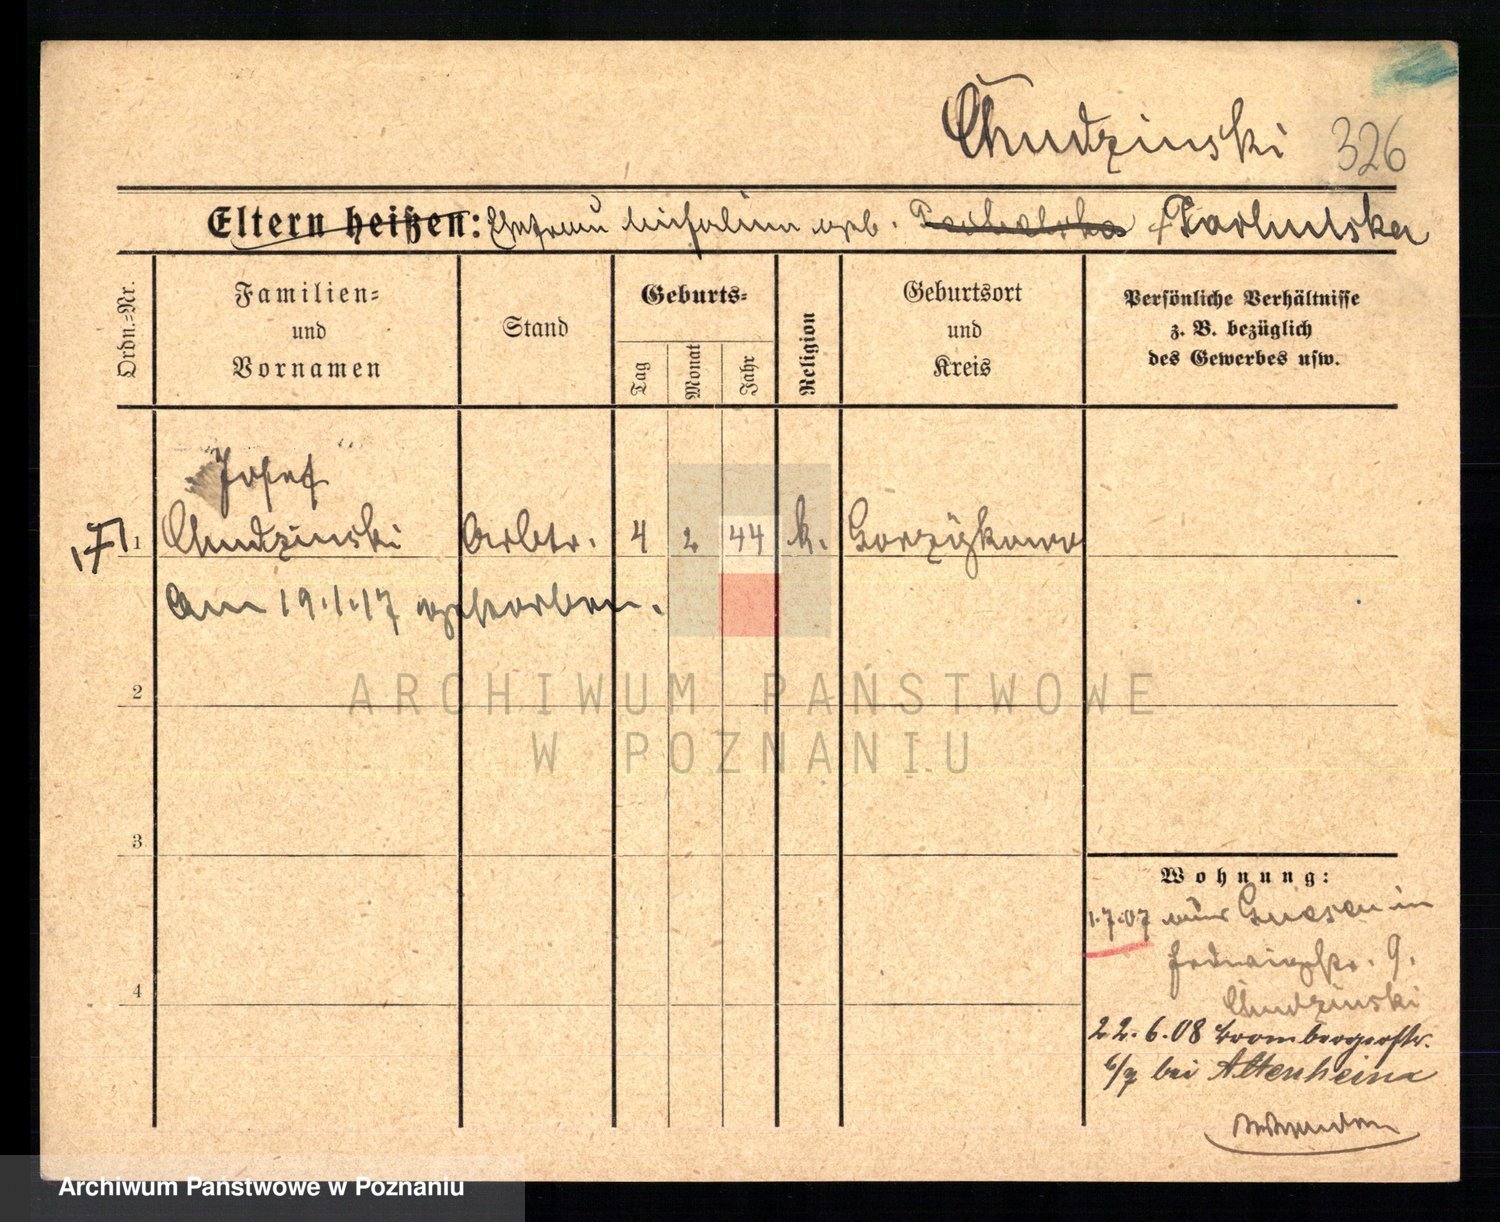 Chudzinski 326
Eltern heißen: Ehefrau Michalina geb.
Ordn.-Nr.
Familien-
und
Vornamen
Stand
Geburts-
Tag
Monat
Jahr
Religion
Geburtsort
und
Kreis
Persönliche Verhältnisse
z. B. bezüglich
des Gewerbes usw.
Josef
1 Chudzinski Arbtr. 4 2 44 k. Gorzykowo
Am 19.1.17 gestorben.
2
3
4
Wohnung:
1.7.07 Gnesen in
9.
Chudzinski
22.6.08 Brombergerstr.
6/7 bei Altenheim
ARCHIWUM PAŃSTWOWE
W POZNANIU
Archiwum Państwowe w Poznaniu